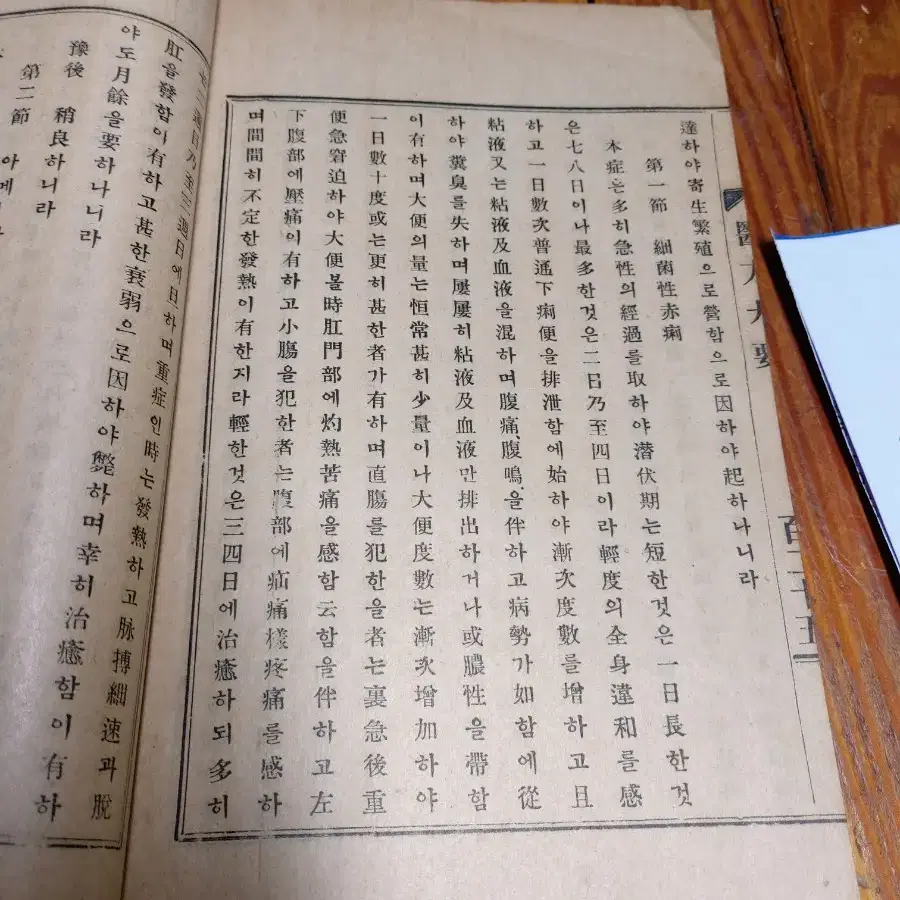 達하야寄生繁殖으로營함으로因하야起하나니라
第一節 細菌性赤痢
本症은多히急性의經過를取하야潛伏期는短한것은一日長한것
은七八日이나最多한것은二日乃至四日이라輕度의全身違和를感
하고一日數次普通下痢便을排泄함에始하야漸次度數를增하고且
粘液又는粘液及血液을混하며腹痛、腹鳴을伴하고病勢가如함에從
하야糞臭를失하며屢屢히粘液及血液만排出하거나或膿性을帶함
이有하며大便의量는恒常甚히少量이나大便度數는漸次增加하야
一日數十度或는更히甚한者가有하며直腸를犯한을者는裏急後重
便急窘迫하야大便볼時肛門部에灼熱苦痛을感함云함을伴하고左
下腹部에壓痛이有하고小腸을犯한者는腹部에疝痛樣疼痛를感하
며間間히不定한發熱이有한지라輕한것은三四日에治癒하되多히
二週日乃至三週日에亘하며重症인時는發熱하고脉搏細速과脫
肛을發함이有하고甚한衰弱으로因하야斃하며幸히治癒함이有하
야도月餘을要하나니라
豫後 稍良하니라
第二節 아메